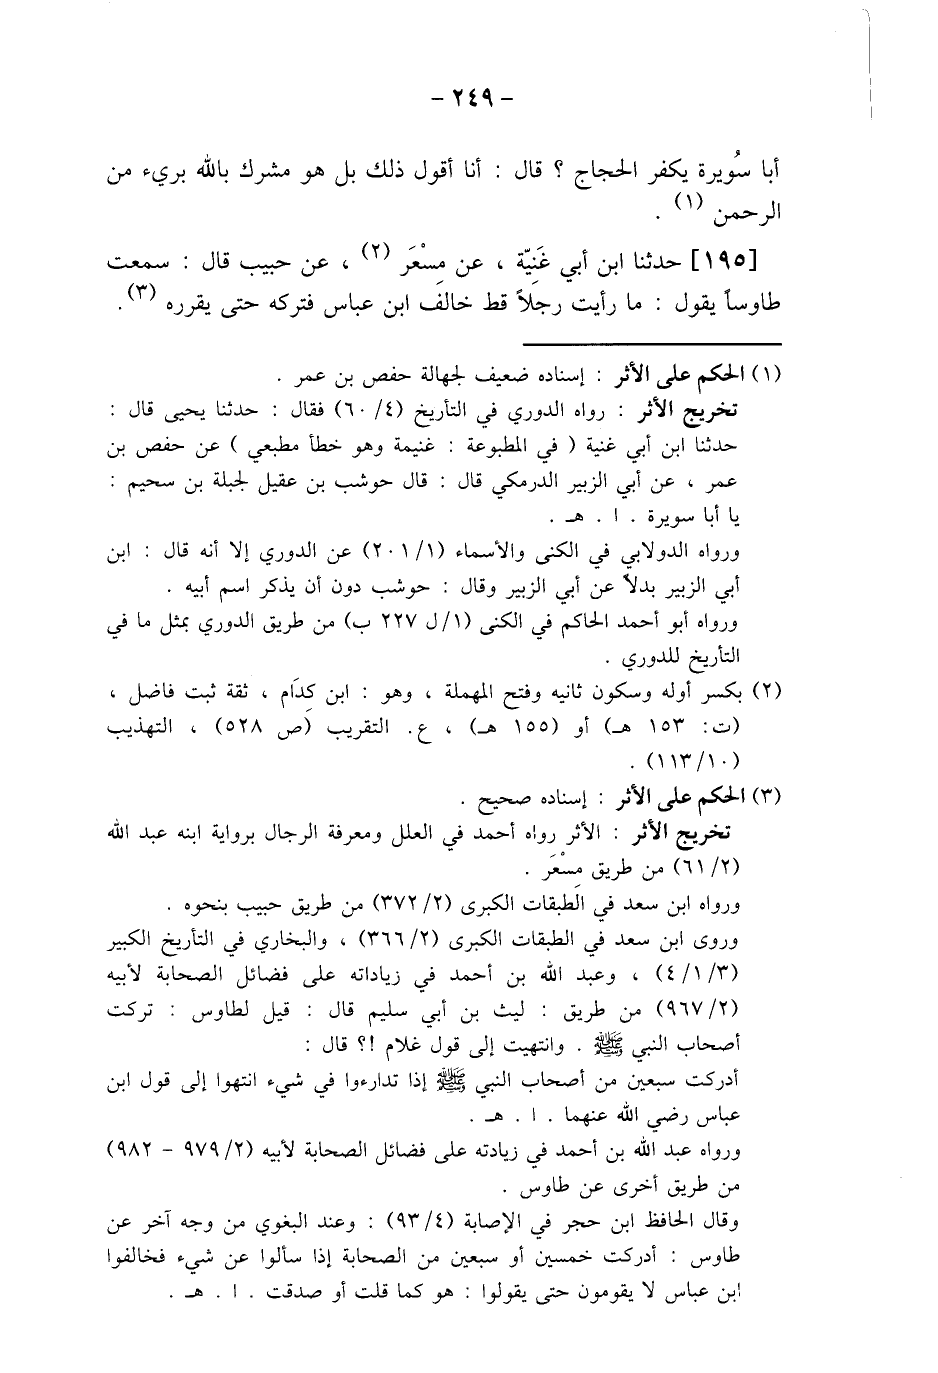 – ٢٤٩ –
أبا سُويرة يكفر الحجاج ؟ قال : أنا أقول ذلك بل هو مشرك بالله بريء من
الرحمن (١) .
[١٩٥] حدثنا ابن أبي غَنِيّة ، عن مِسْعَر (٢) ، عن حبيب قال : سمعت
طاوساً يقول : ما رأيت رجلاً قط خالف ابن عباس فتركه حتى يقرره (٣) .
(١) الحكم على الأثر : إسناده ضعيف لجهالة حفص بن عمر .
تخريج الأثر : رواه الدوري في التأريخ (٦٠/٤) فقال : حدثنا يحيى قال :
حدثنا ابن أبي غنية ( في المطبوعة : غنيمة وهو خطأ مطبعي ) عن حفص بن
عمر ، عن أبي الزبير الدرمكي قال : قال حوشب بن عقيل لجبلة بن سحيم :
يا أبا سويرة . ا . هـ .
ورواه الدولابي في الكنى والأسماء (٢٠١/١) عن الدوري إلا أنه قال : ابن
أبي الزبير بدلاً عن أبي الزبير وقال : حوشب دون أن يذكر اسم أبيه .
ورواه أبو أحمد الحاكم في الكنى (١/ل ٢٢٧ ب) من طريق الدوري بمثل ما في
التأريخ للدوري .
(٢) بكسر أوله وسكون ثانيه وفتح المهملة ، وهو : ابن كِدَام ، ثقة ثبت فاضل ،
(ت: ١٥٣ هـ) أو (١٥٥ هـ) ، ع. التقريب (ص ٥٢٨) ، التهذيب
(١١٣/١٠) .
(٣) الحكم على الأثر : إسناده صحيح .
تخريج الأثر : الأثر رواه أحمد في العلل ومعرفة الرجال برواية ابنه عبد الله
(٦١/٢) من طريق مِسْعَر .
ورواه ابن سعد في الطبقات الكبرى (٣٧٢/٢) من طريق حبيب بنحوه .
وروى ابن سعد في الطبقات الكبرى (٣٦٦/٢) ، والبخاري في التأريخ الكبير
(٤/١/٣) ، وعبد الله بن أحمد في زياداته على فضائل الصحابة لأبيه
(٩٦٧/٢) من طريق : ليث بن أبي سليم قال : قيل لطاوس : تركت
أصحاب النبي ﷺ . وانتهيت إلى قول غلام !؟ قال :
أدركت سبعين من أصحاب النبي ﷺ إذا تدارءوا في شيء انتهوا إلى قول ابن
عباس رضي الله عنهما . ا . هـ .
ورواه عبد الله بن أحمد في زيادته على فضائل الصحابة لأبيه (٩٧٩/٢ – ٩٨٢)
من طريق أخرى عن طاوس .
وقال الحافظ ابن حجر في الإصابة (٩٣/٤) : وعند البغوي من وجه آخر عن
طاوس : أدركت خمسين أو سبعين من الصحابة إذا سألوا عن شيء فخالفوا
ابن عباس لا يقومون حتى يقولوا : هو كما قلت أو صدقت . ا . هـ .